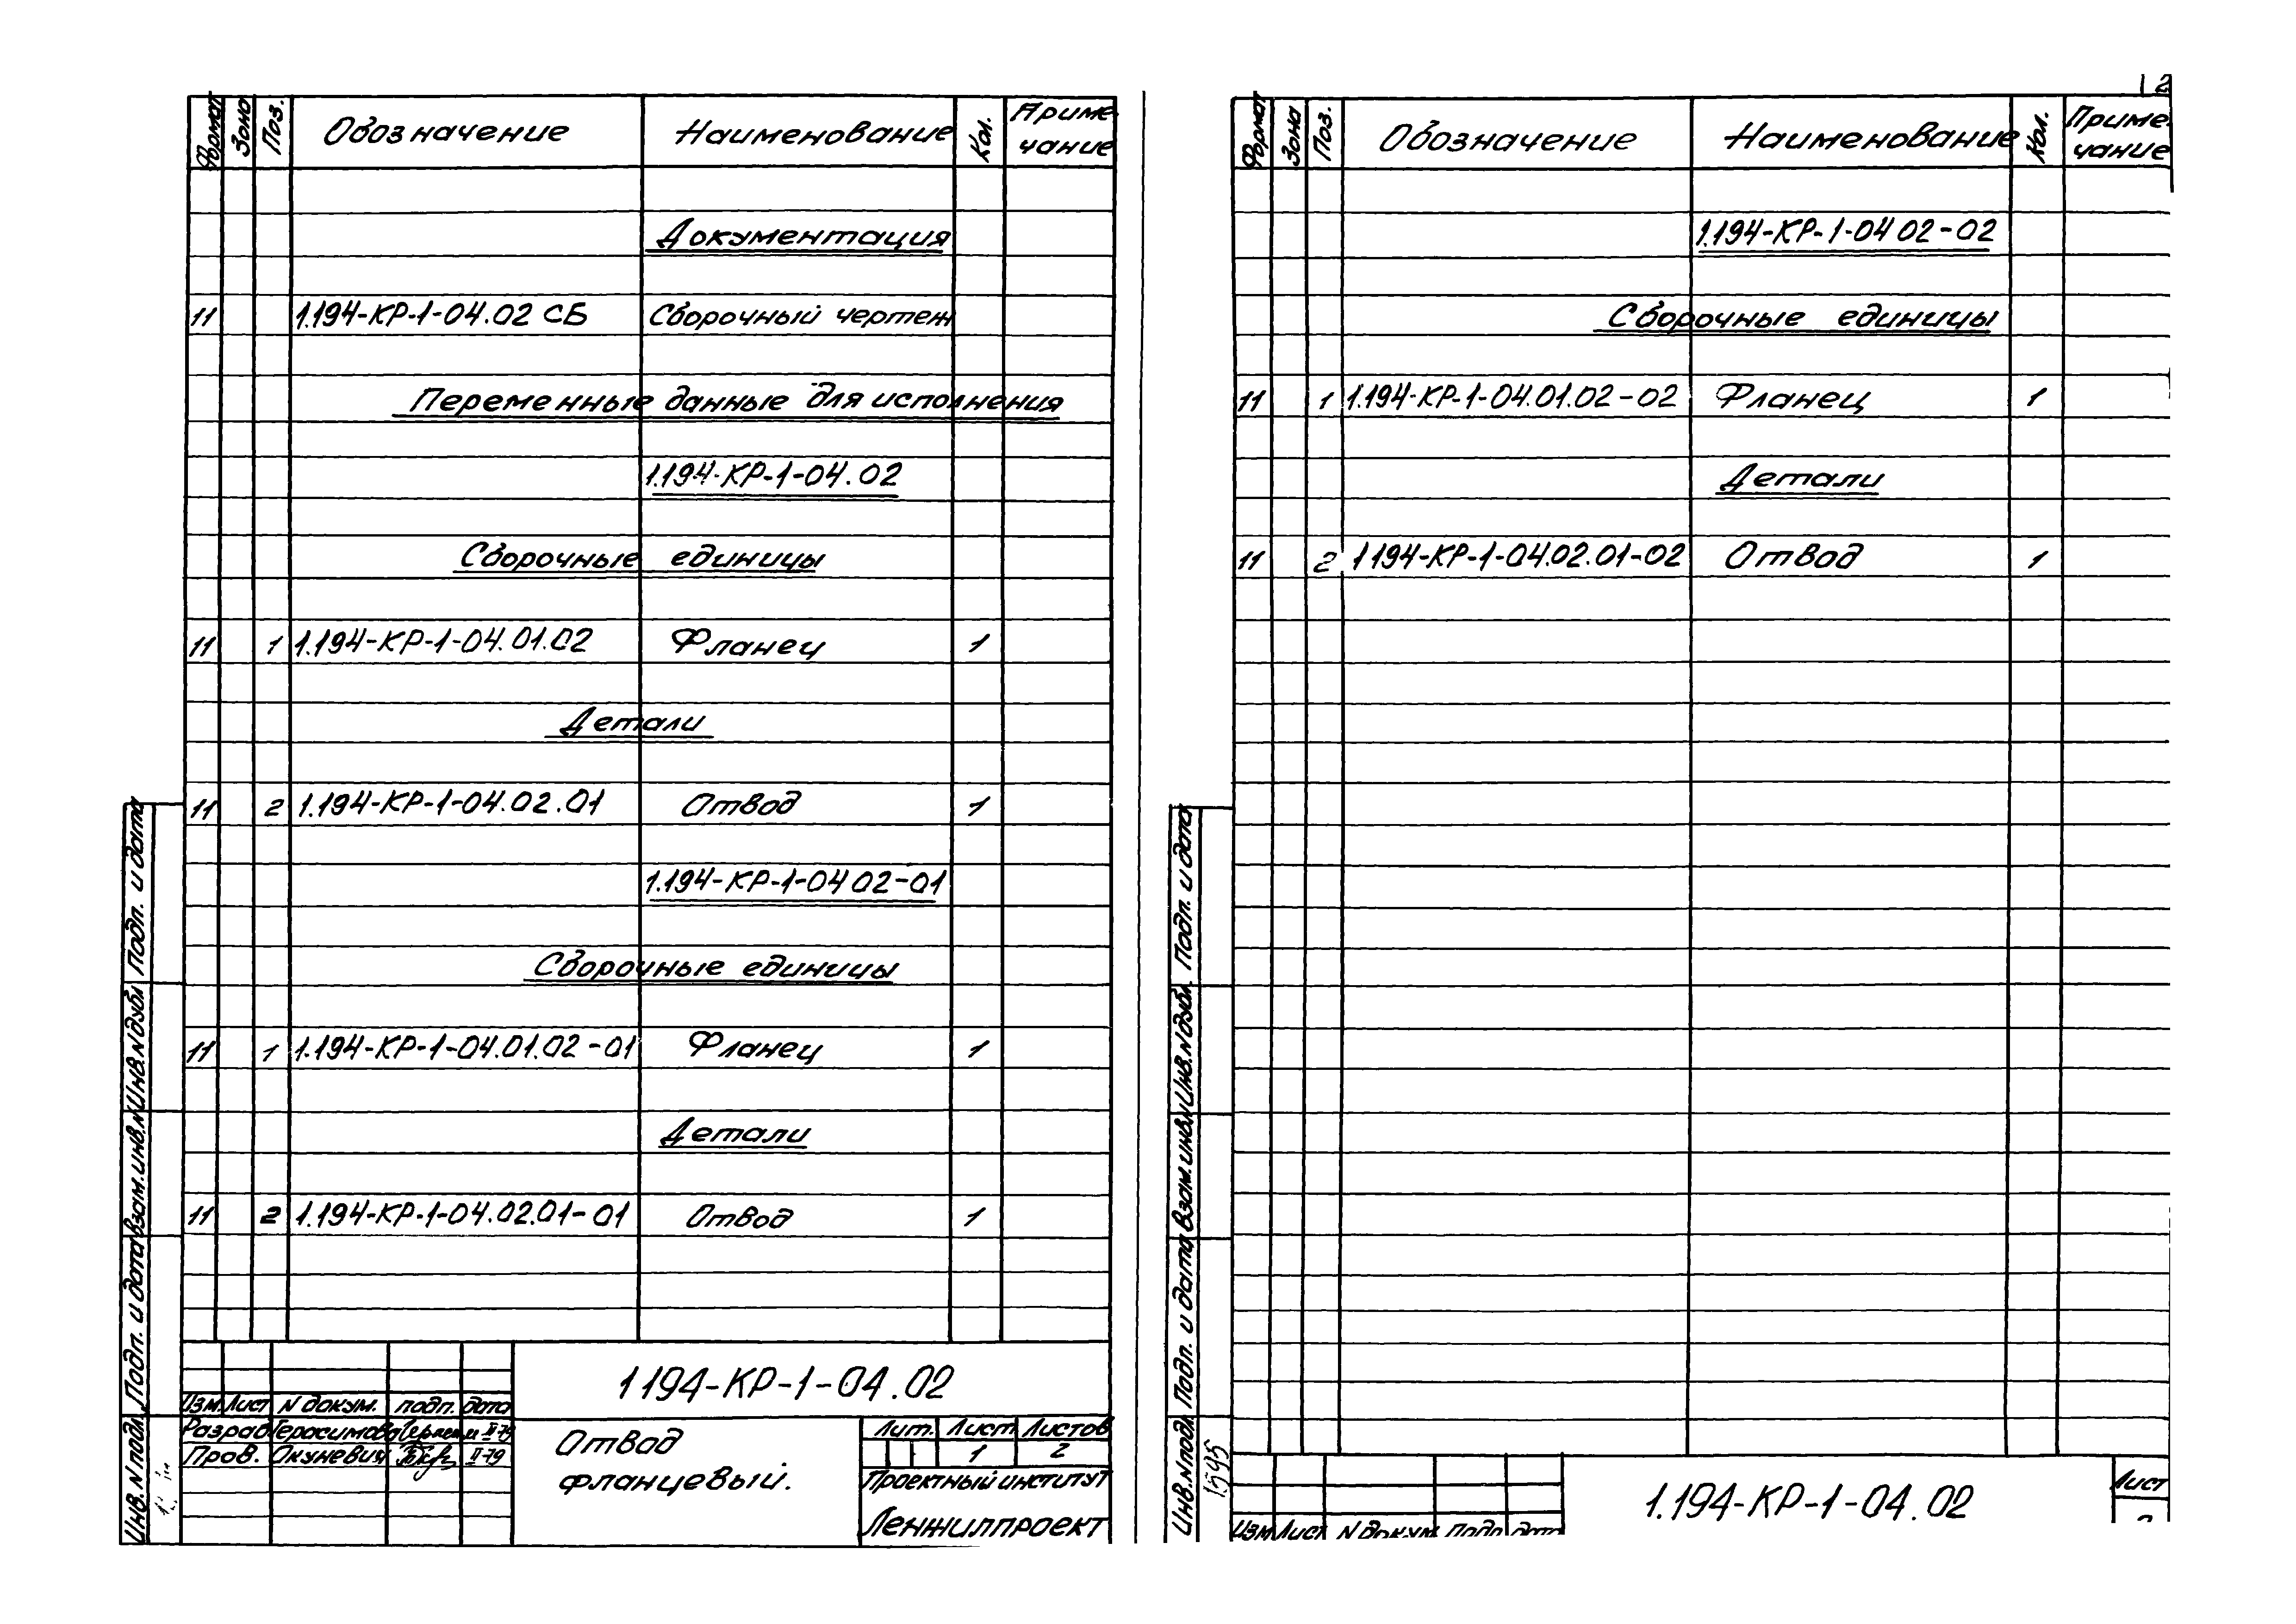 Формат Зона Поз. Обозначение Наименование Кол. Приме-
чание
Документация
11 1.194-КР-1-04.02 СБ Сборочный чертеж
Переменные данные для исполнения
1.194-КР-1-04.02
Сборочные единицы
11 1 1.194-КР-1-04.01.02 Фланец 1
Детали
11 2 1.194-КР-1-04.02.01 Отвод 1
1.194-КР-1-04 02-01
Сборочные единицы
11 1 1.194-КР-1-04.01.02-01 Фланец 1
Детали
11 2 1.194-КР-1-04.02.01-01 Отвод 1
Подп. и дата
Инв.N дубл
Взам.инв.N
Подп. и дата
Инв.N подл.
1 194-КР-1-04.02
Изм. Лист N докум. подп. дата
Разраб Герасимова II-79
Пров. Окуневич II-79
Отвод
фланцевый.
Лит. Лист Листов
1 2
Проектный институт
Ленжилпроект
2
Формат Зона Поз. Обозначение Наименование Кол. Приме-
чание
1.194-КР-1-04 02-02
Сборочные единицы
11 1 1.194-КР-1-04.01.02-02 Фланец 1
Детали
11 2 1 194-КР-1-04.02.01-02 Отвод 1
Подп. и дата
Инв.N дубл.
Взам.инв.N
Подп. и дата
Инв.N подл.
1595
Изм Лист N докум подп дата
1.194-КР-1-04.02
Лист